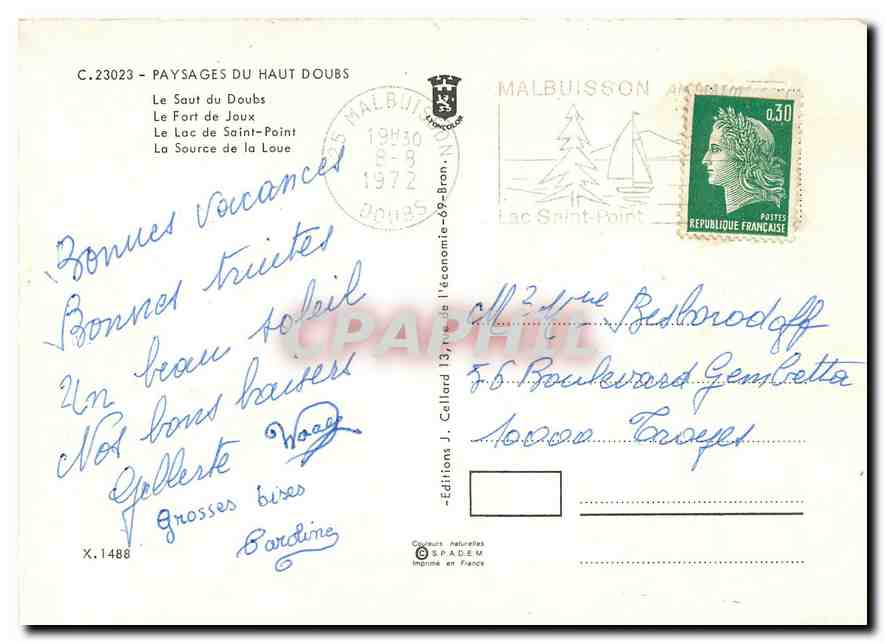 C.23023 - PAYSAGES DU HAUT DOUBS
Le Saut du Doubs
Le Fort de Joux
Le Lac de Saint-Point
La Source de la Loue
LYONCOLOR
25 MALBUISSON
19H30
8-8
1972
DOUBS
MALBUISSON
Lac Saint-Point
0,30
POSTES
REPUBLIQUE FRANÇAISE
Bonnes vacances
Bonnes truites
Un beau soleil
Nos bons baisers
Gilberte
Grosses bises
Caroline
X.1488
-Editions J. Cellard 13, rue de l'économie-69-Bron.
CPAPHIL
Besborodoff
56 Boulevard Gembetta
10000 Troyes
Couleurs naturelles
© S.P.A.D.E.M
Imprimé en France